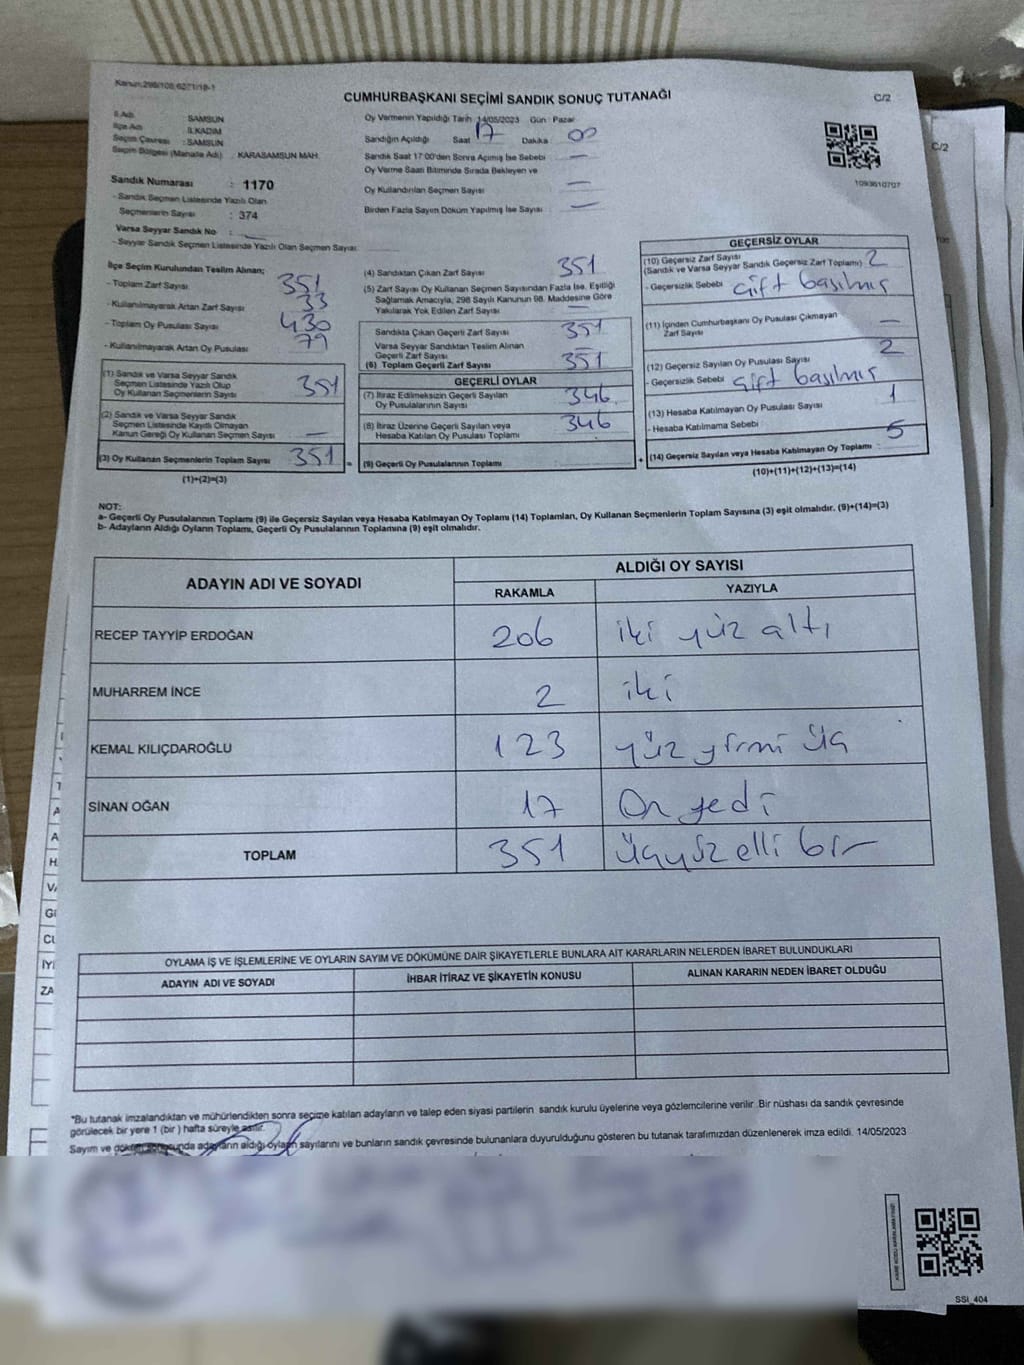 Kanun:298/108,6271/18-1
CUMHURBAŞKANI SEÇİMİ SANDIK SONUÇ TUTANAĞI
C/2
C/2
İl Adı SAMSUN
İlçe Adı İLKADIM
Seçim Çevresi : SAMSUN
Seçim Bölgesi (Mahalle Adı) : KARASAMSUN MAH.
Sandık Numarası : 1170
- Sandık Seçmen Listesinde Yazılı Olan
Seçmenlerin Sayısı : 374
Varsa Seyyar Sandık No :
- Seyyar Sandık Seçmen Listesinde Yazılı Olan Seçmen Sayısı:
Oy Vermenin Yapıldığı Tarih :14/05/2023 Gün : Pazar
Sandığın Açıldığı Saat 17 Dakika : 00
Sandık Saat 17:00'den Sonra Açımış İse Sebebi —
Oy Verme Saati Bitiminde Sırada Bekleyen ve
Oy Kullandırılan Seçmen Sayısı —
Birden Fazla Sayım Döküm Yapılmış İse Sayısı —
1093610707
İlçe Seçim Kurulundan Teslim Alınan;
- Toplam Zarf Sayısı 351
- Kullanılmayarak Artan Zarf Sayısı 33
- Toplam Oy Pusulası Sayısı 430
- Kullanılmayarak Artan Oy Pusulası 79
(1) Sandık ve Varsa Seyyar Sandık
Seçmen Listesinde Yazılı Olup
Oy Kullanan Seçmenlerin Sayısı 351
(2) Sandık ve Varsa Seyyar Sandık
Seçmen Listesinde Kayıtlı Olmayan
Kanun Gereği Oy Kullanan Seçmen Sayısı —
(3) Oy Kullanan Seçmenlerin Toplam Sayısı 351 =
(1)+(2)=(3)
(4) Sandıktan Çıkan Zarf Sayısı 351
(5) Zarf Sayısı Oy Kullanan Seçmen Sayısından Fazla İse, Eşitliği
Sağlamak Amacıyla, 298 Sayılı Kanunun 98. Maddesine Göre
Yakılarak Yok Edilen Zarf Sayısı —
Sandıkta Çıkan Geçerli Zarf Sayısı 351
Varsa Seyyar Sandıktan Teslim Alınan
Geçerli Zarf Sayısı
(6) Toplam Geçerli Zarf Sayısı 351
GEÇERLİ OYLAR
(7) İtiraz Edilmeksizin Geçerli Sayılan
Oy Pusulalarının Sayısı 346
(8) İtiraz Üzerine Geçerli Sayılan veya
Hesaba Katılan Oy Pusulaları Toplamı 346
(9) Geçerli Oy Pusulalarının Toplamı +
GEÇERSİZ OYLAR
(10) Geçersiz Zarf Sayısı
(Sandık ve Varsa Seyyar Sandık Geçersiz Zarf Toplamı) 2
- Geçersizlik Sebebi çift basılmış
(11) İçinden Cumhurbaşkanı Oy Pusulası Çıkmayan
Zarf Sayısı —
(12) Geçersiz Sayılan Oy Pusulası Sayısı 2
- Geçersizlik Sebebi çift basılmış
(13) Hesaba Katılmayan Oy Pusulası Sayısı 1
- Hesaba Katılmama Sebebi
(14) Geçersiz Sayılan veya Hesaba Katılmayan Oy Toplamı : 5
(10)+(11)+(12)+(13)=(14)
NOT:
a- Geçerli Oy Pusulalarının Toplamı (9) ile Geçersiz Sayılan veya Hesaba Katılmayan Oy Toplamı (14) Toplamları, Oy Kullanan Seçmenlerin Toplam Sayısına (3) eşit olmalıdır. (9)+(14)=(3)
b- Adayların Aldığı Oyların Toplamı, Geçerli Oy Pusulalarının Toplamına (9) eşit olmalıdır.
ADAYIN ADI VE SOYADI
ALDIĞI OY SAYISI
RAKAMLA YAZIYLA
RECEP TAYYİP ERDOĞAN 206 iki yüz altı
MUHARREM İNCE 2 iki
KEMAL KILIÇDAROĞLU 123 yüz yirmi üç
SİNAN OĞAN 17 On yedi
TOPLAM 351 üçyüz elli bir
OYLAMA İŞ VE İŞLEMLERİNE VE OYLARIN SAYIM VE DÖKÜMÜNE DAİR ŞİKAYETLERLE BUNLARA AİT KARARLARIN NELERDEN İBARET BULUNDUKLARI
ADAYIN ADI VE SOYADI İHBAR İTİRAZ VE ŞİKAYETİN KONUSU ALINAN KARARIN NEDEN İBARET OLDUĞU
"Bu tutanak imzalandıktan ve mühürlendikten sonra seçime katılan adayların ve talep eden siyasi partilerin sandık kurulu üyelerine veya gözlemcilerine verilir .Bir nüshası da sandık çevresinde
görülecek bir yere 1 (bir ) hafta süreyle asılır.
Sayım ve döküm sonunda adayların aldığı oyların sayılarını ve bunların sandık çevresinde bulunanlara duyurulduğunu gösteren bu tutanak tarafımızdan düzenlenerek imza edildi. 14/05/2023
SSI_404